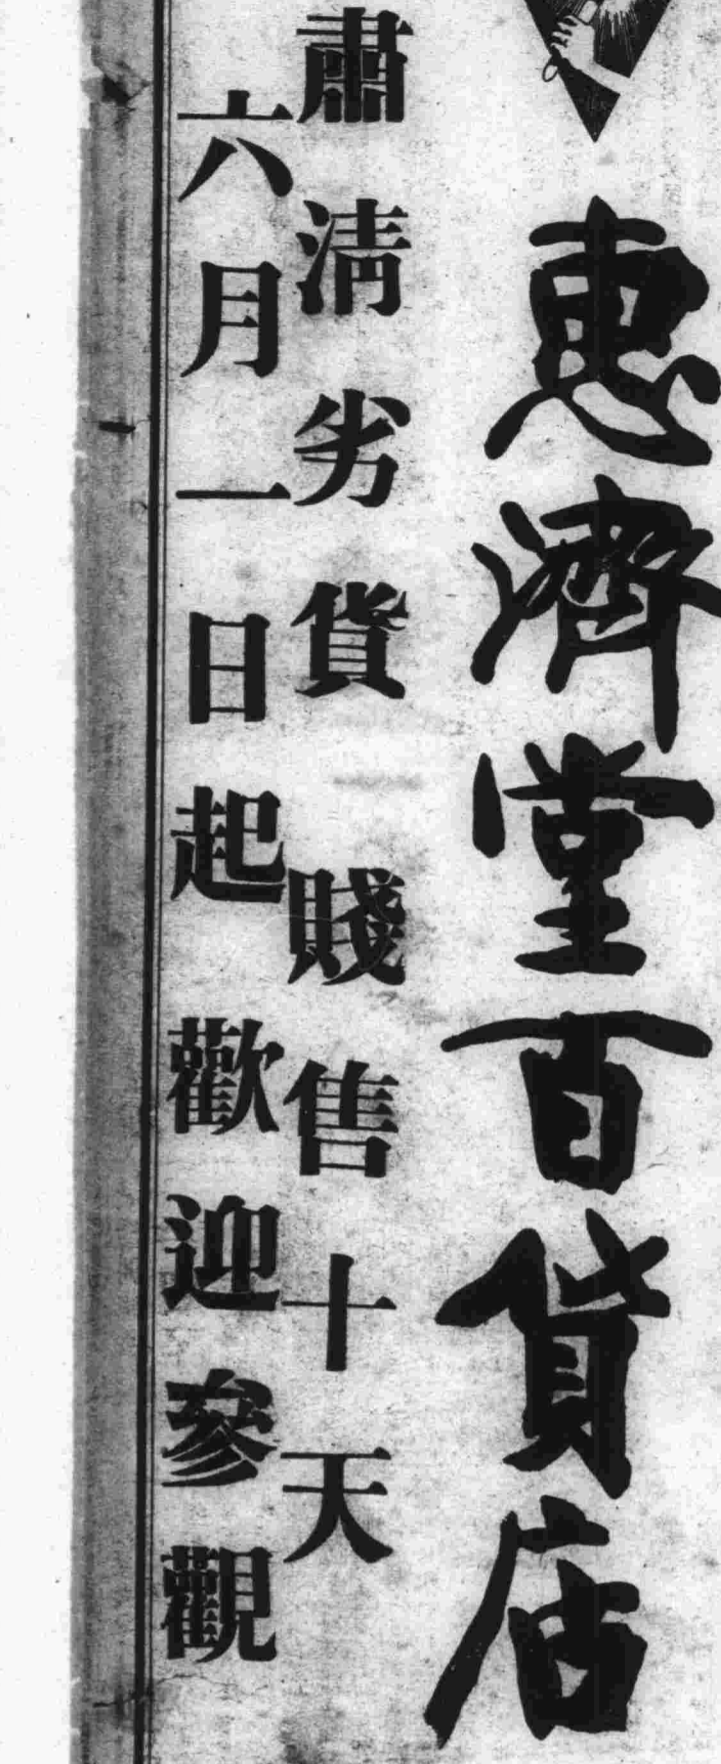 惠濟堂百貨店
肅清劣貨 賤售十天
六月一日起 歡迎參觀